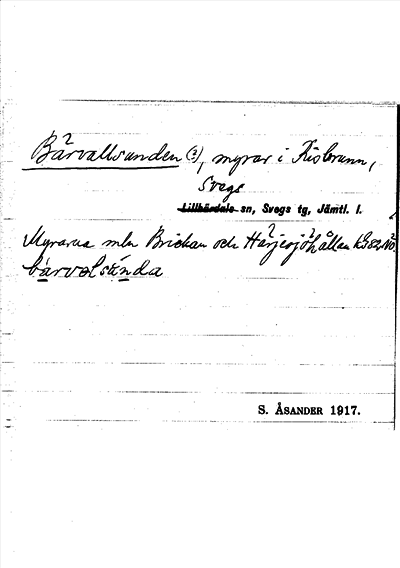 Bärvallsunden (?), myrar i Risbrunn,
Svegs
Lillhärdals sn, Svegs tg, Jämtl. l.
Myrarna mln Brickan och Härjesjöhållan
bärvəlsúnda
S. ÅSANDER 1917.